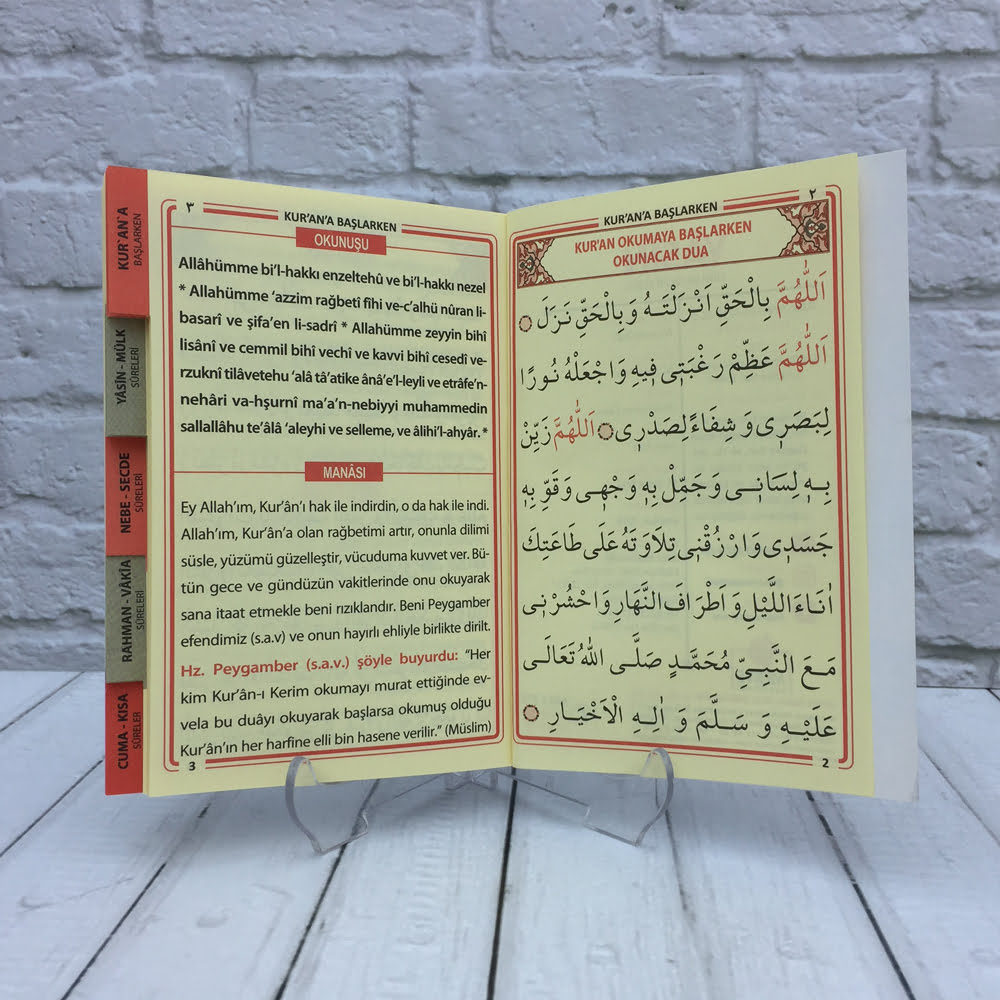 KUR'AN'A
BAŞLARKEN
YÂSÎN - MÜLK
SÛRELERİ
NEBE - SECDE
SÛRELERİ
RAHMAN - VÂKIA
SÛRELERİ
CUMA - KISA
SÛRELER
٢
KUR'AN'A BAŞLARKEN
KUR'AN OKUMAYA BAŞLARKEN
OKUNACAK DUA
اَللّٰهُمَّ بِالْحَقِّ اَنْزَلْتَهُ وَبِالْحَقِّ نَزَلَ
اَللّٰهُمَّ عَظِّمْ رَغْبَتِى فِيهِ وَاجْعَلْهُ نُورًا
لِبَصَرِى وَ شِفَاءً لِصَدْرِى اَللّٰهُمَّ زَيِّنْ
بِهِ لِسَانِى وَجَمِّلْ بِهِ وَجْهِى وَقَوِّ بِهِ
جَسَدِى وَارْزُقْنِى تِلَاوَتَهُ عَلَى طَاعَتِكَ
اٰنَاءَ اللَّيْلِ وَاَطْرَافَ النَّهَارِ وَاحْشُرْنِى
مَعَ النَّبِىِّ مُحَمَّدٍ صَلَّى اللهُ تَعَالَى
عَلَيْهِ وَ سَلَّمَ وَ اٰلِهِ الْاَخْيَارِ
2
٣
KUR'AN'A BAŞLARKEN
OKUNUŞU
Allâhümme bi'l-hakkı enzeltehû ve bi'l-hakkı nezel
* Allahümme 'azzim rağbetî fîhi ve-c'alhü nûran li-
basarî ve şifa'en li-sadrî * Allahümme zeyyin bihî
lisânî ve cemmil bihî vechî ve kavvi bihî cesedî ve-
rzuknî tilâvetehu 'alâ tâ'atike ânâ'e'l-leyli ve etrâfe'n-
nehâri va-hşurnî ma'a'n-nebiyyi muhammedin
sallallâhu te'âlâ 'aleyhi ve selleme, ve âlihi'l-ahyâr. *
MANÂSI
Ey Allah'ım, Kur'ân'ı hak ile indirdin, o da hak ile indi.
Allah'ım, Kur'ân'a olan rağbetimi artır, onunla dilimi
süsle, yüzümü güzelleştir, vücuduma kuvvet ver. Bü-
tün gece ve gündüzün vakitlerinde onu okuyarak
sana itaat etmekle beni rızıklandır. Beni Peygamber
efendimiz (s.a.v) ve onun hayırlı ehliyle birlikte dirilt.
Hz. Peygamber (s.a.v.) şöyle buyurdu: "Her
kim Kur'ân-ı Kerim okumayı murat ettiğinde ev-
vela bu duâyı okuyarak başlarsa okumuş olduğu
Kur'ân'ın her harfine elli bin hasene verilir." (Müslim)
3